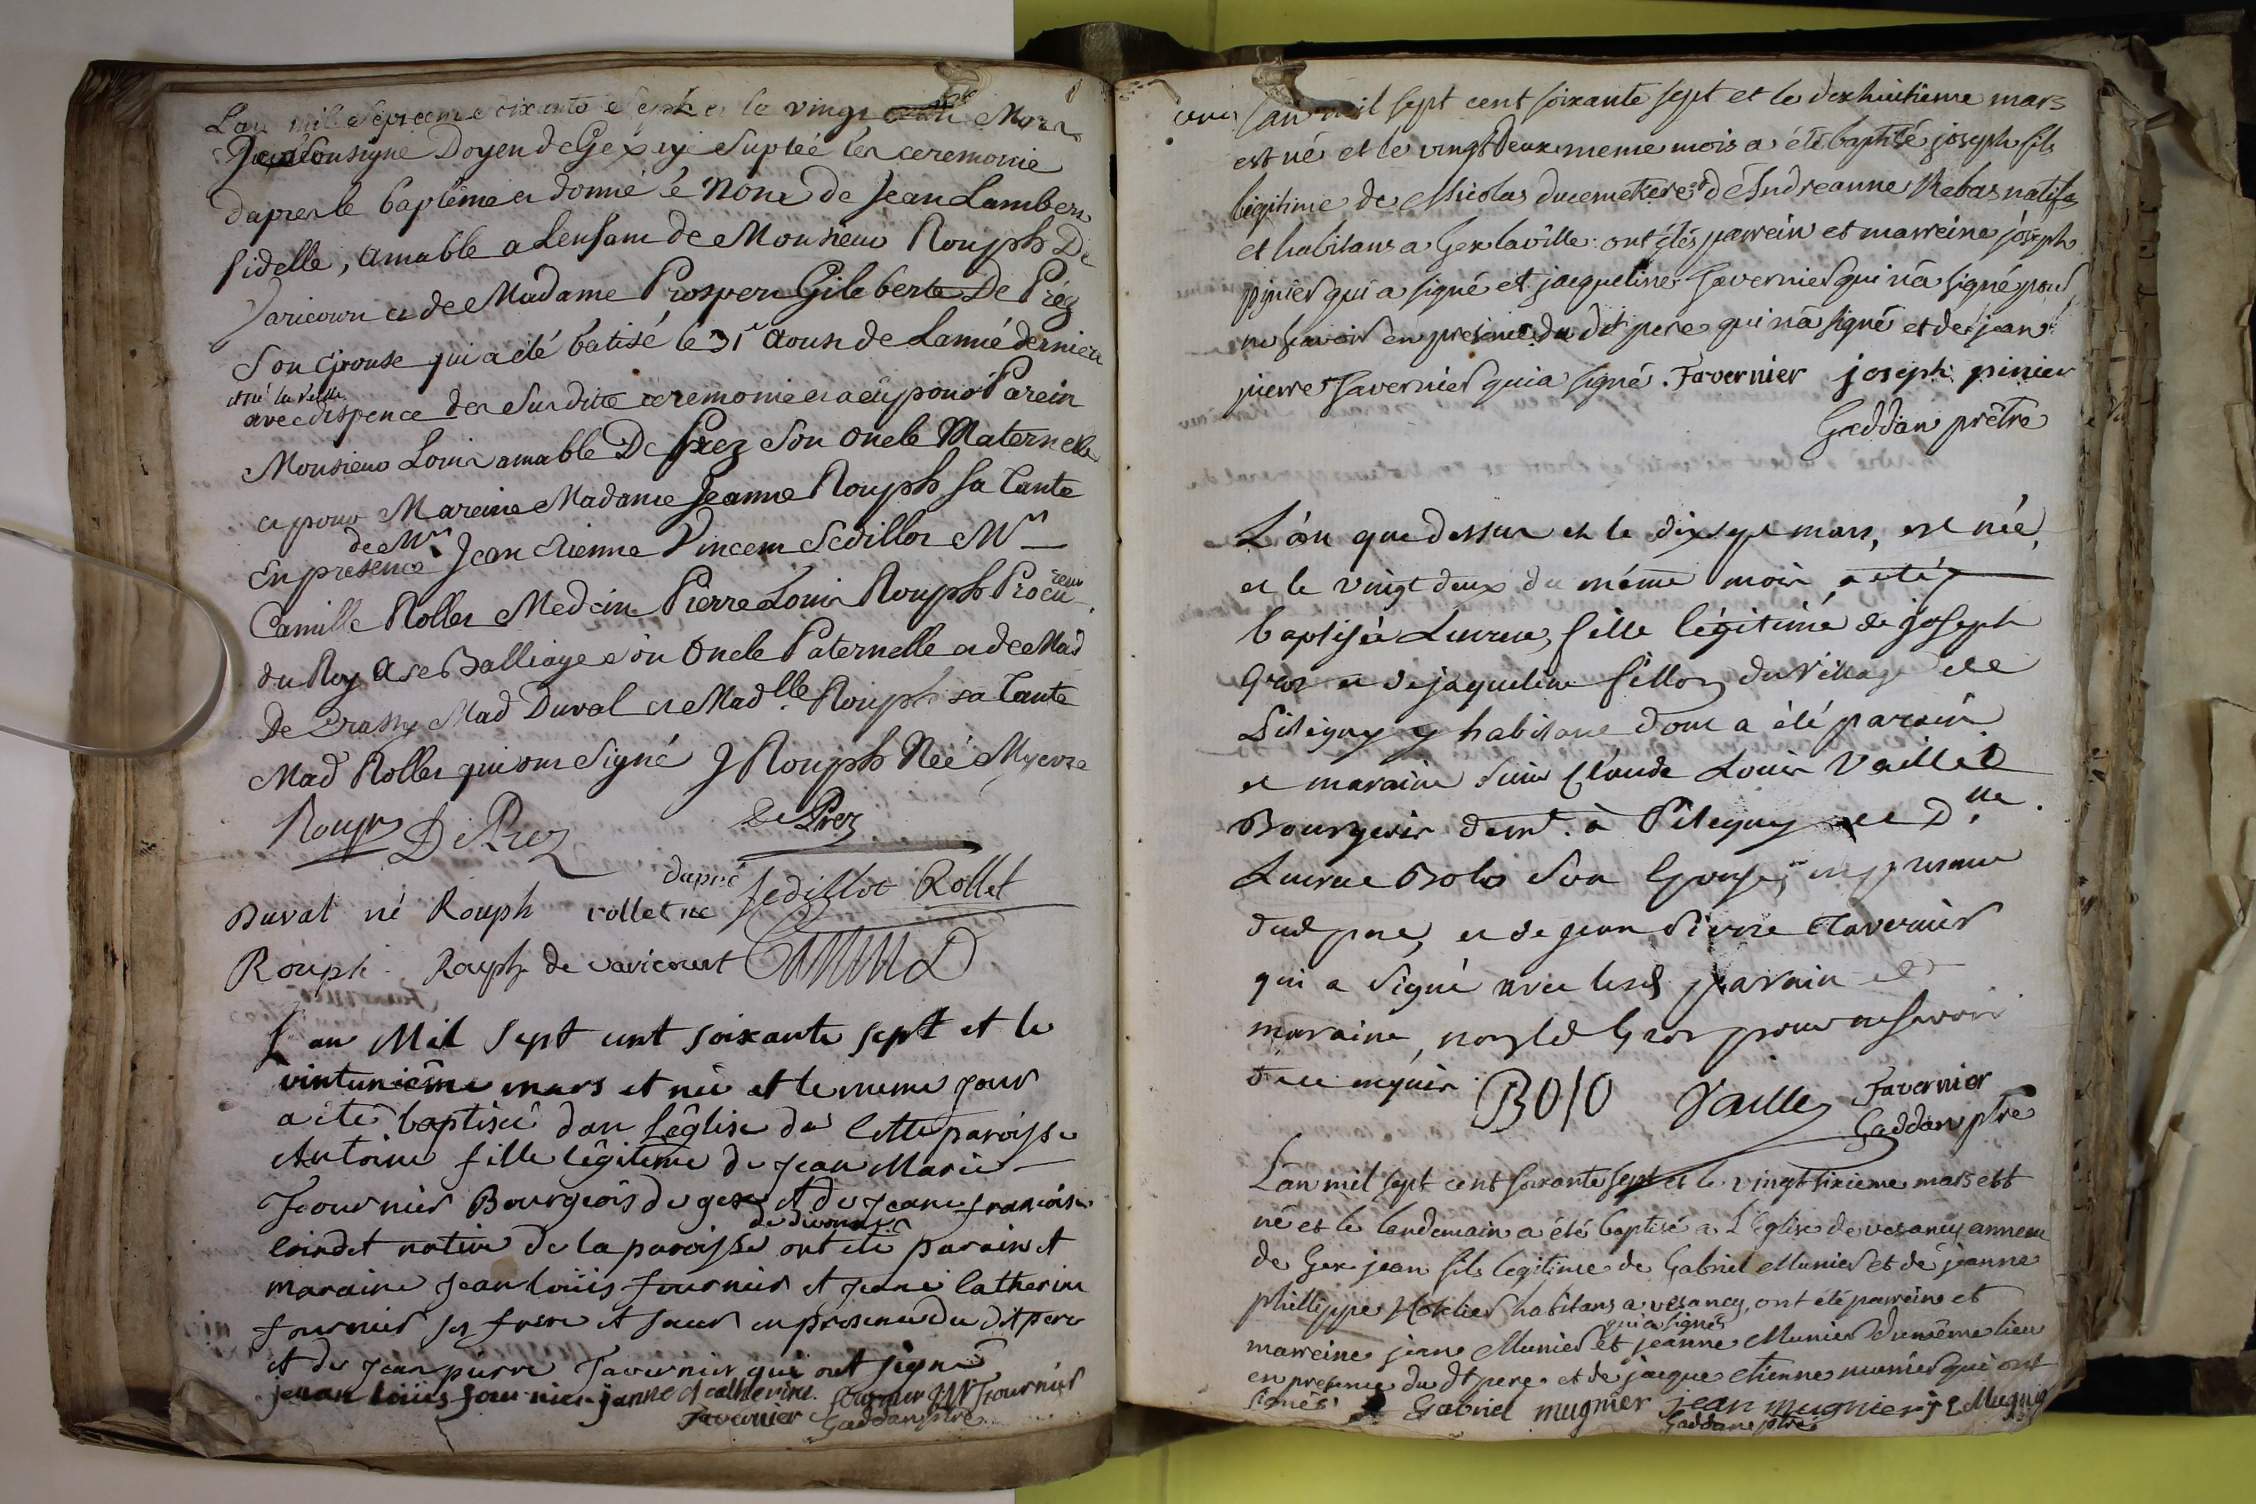 L'an mil Sept cent soixante e Sept et le vingt Mars
Je Soussigné Doyen de Gex ay Supléé les ceremonie
dapres le baptême et donné le Nom de Jean Lambert
fidelle, amable a Lenfant de Monsieur Rouph De
Varicourt et de Madame Prospere Gileberte De Préz
Son Epouse qui a été batisé le 31e Aoust de Lannée derniere
et né la veille
avec dispence des Susditte ceremonie et a eü pour Parein
Monsieur Louis amable De Prez Son Oncle Maternelle
et pour Mareine Madame Jeanne Rouph Sa Tante
En presence de Mrs Jean Etienne Vincent Sedillot Mr
Camille Rollet Medcin Pierre Louis Rouph Procureur
du Roy Ase Balliage son Oncle Paternelle et de Mad
De Crassy Mad Duval et Madlle Rouph sa Tante
Mad Rollet qui ont Signé J Rouph Neé Myevre
Rouph DePrez De Prez
Duval né Rouph rollet né dupré Sedillot Rollet
Rouph Rouph de varicourt
L'an Mil Sept cent soixante sept et le
vintunième mars et née et le meme jour
a été baptiseé dans l'église de cette paroisse
Antoine fille légitime de Jean Marie
Fournier Bourgeois de gex et de Jeane francoise
Loindet native de la paroisse de divonne ont été parain et
maraine Jean Loüis fournier et Jeane Catherine
fournier ses frere et soeur en presence du dit pere
et de Jean pierre Tavernier qui ont signé
jeuan loüis four nier janne et catherine fournier JM Fournier
Tavernier Gaddan ptre
L'an mil sept cent soixante sept et le dixhuitieme mars
est né et le vingt Deux meme mois a été baptisé joseph fils
legitime de Nicolas ducemetiere et d'Andreanne Rebas natifs
et habitans a Gex laville. ont étés parrein et marreine joseph
pinier qui a signé et jacqueline Tavernier qui n'a signé pour
ne scavoir en presence du dit pere qui n'a signé et de jean
pierre Tavernier qui a signé. Tavernier joseph pinier
Gaddan prêtre
L'an que dessus et le dixsept mars, est née,
et le vingt deux du même mois a été
baptisée Lucrece, fille légitime de Joseph
Groz et de jaqueline fillon du Village de
Pitegny y habitans dont a été parain
et maraine Sieur Claude Louis Vaillet
Bourgeois demt. à Pitegny et Dlle.
Lucrece Bolo Son Epouse, en presence
dud pere, et de Jean Pierre Tavernier
qui a Signé avec lesd parain et
maraine, non led Groz pour ne savoir
de ce enquis. BOlO Vaillet Tavernier
Gaddan ptre
L'an mil sept cent soixante sept et le vingt sixieme mars est
né et le lendemain a été baptisé a L'Eglise de vesancy annexe
de Gex jean fils legitime de Gabriel Munier et de jeanne
phillippe habitans a vesancy, ont été parrein et
marreine jean Munier qui a signé et jeanne Munier du même lieu
en presence du dt pere et de jacque etienne munier qui ont
signés Gabriel mugnier jean mugnier j E Mugnier
Gaddan ptre